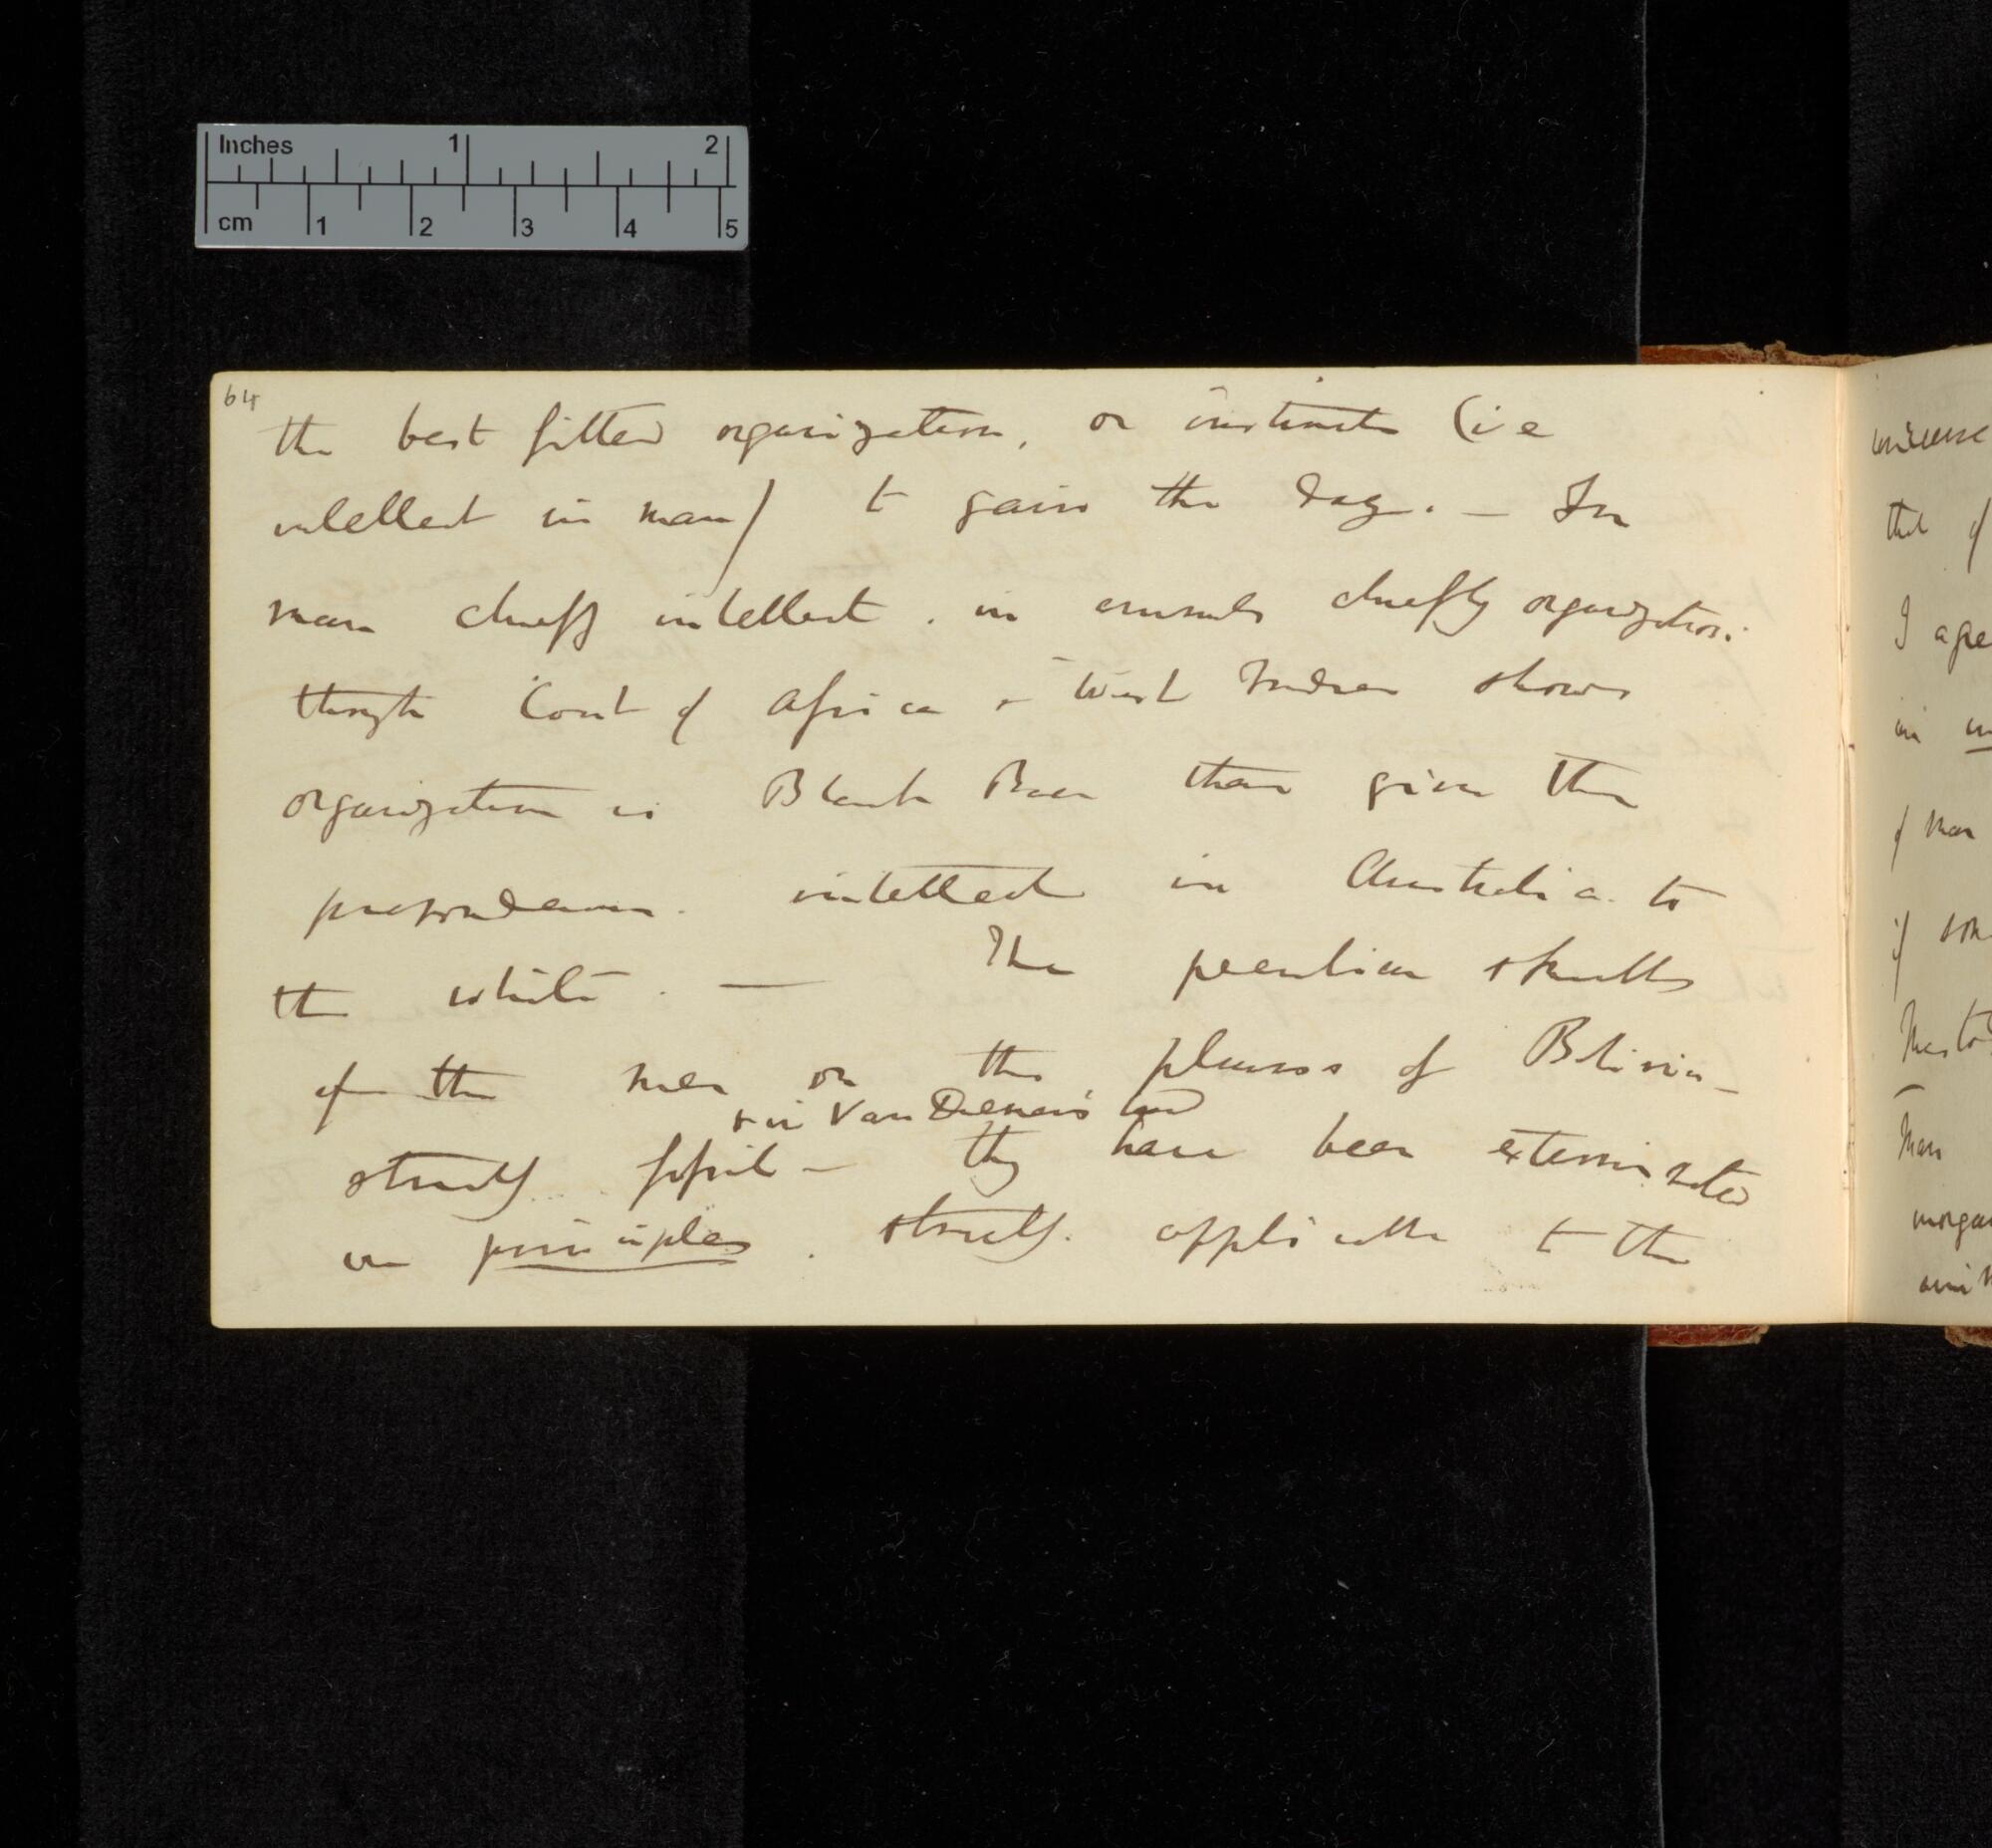 Inches 1 2
cm 1 2 3 4 5
64
the best fitted organization, or instincts (i e
intellect in man) to gain the day. — In
man chiefly intellect. in animals chiefly organization.
though Cont of Africa & West Indies shows
organization in Black Race there gives the
preponderance. intellect in Australia. to
the white. — The peculiar skulls
of the men on the plains of Bolivia —
& in Van Diemen's land
strictly fossil — they have been exterminated
on principles. strictly. applicable to the
universe
that of
I
in
of man
if
Man